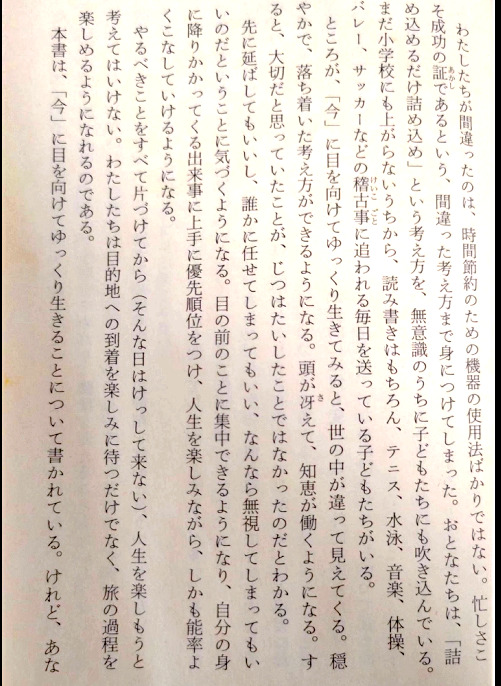 わたしたちが間違ったのは、時間節約のための機器の使用法ばかりではない。忙しさこ
そ成功の証であるという、間違った考え方まで身につけてしまった。おとなたちは、「詰
め込めるだけ詰め込め」という考え方を、無意識のうちに子どもたちにも吹き込んでいる。
まだ小学校にも上がらないうちから、読み書きはもちろん、テニス、水泳、音楽、体操、
バレー、サッカーなどの稽古事に追われる毎日を送っている子どもたちがいる。
ところが、「今」に目を向けてゆっくり生きてみると、世の中が違って見えてくる。穏
やかで、落ち着いた考え方ができるようになる。頭が冴えて、知恵が働くようになる。す
ると、大切だと思っていたことが、じつはたいしたことではなかったのだとわかる。
先に延ばしてもいいし、誰かに任せてしまってもいい、なんなら無視してしまってもい
いのだということに気づくようになる。目の前のことに集中できるようになり、自分の身
に降りかかってくる出来事に上手に優先順位をつけ、人生を楽しみながら、しかも能率よ
くこなしていけるようになる。
やるべきことをすべて片づけてから（そんな日はけっして来ない）、人生を楽しもうと
考えてはいけない。わたしたちは目的地への到着を楽しみに待つだけでなく、旅の過程を
楽しめるようになれるのである。
本書は、「今」に目を向けてゆっくり生きることについて書かれている。けれど、あな